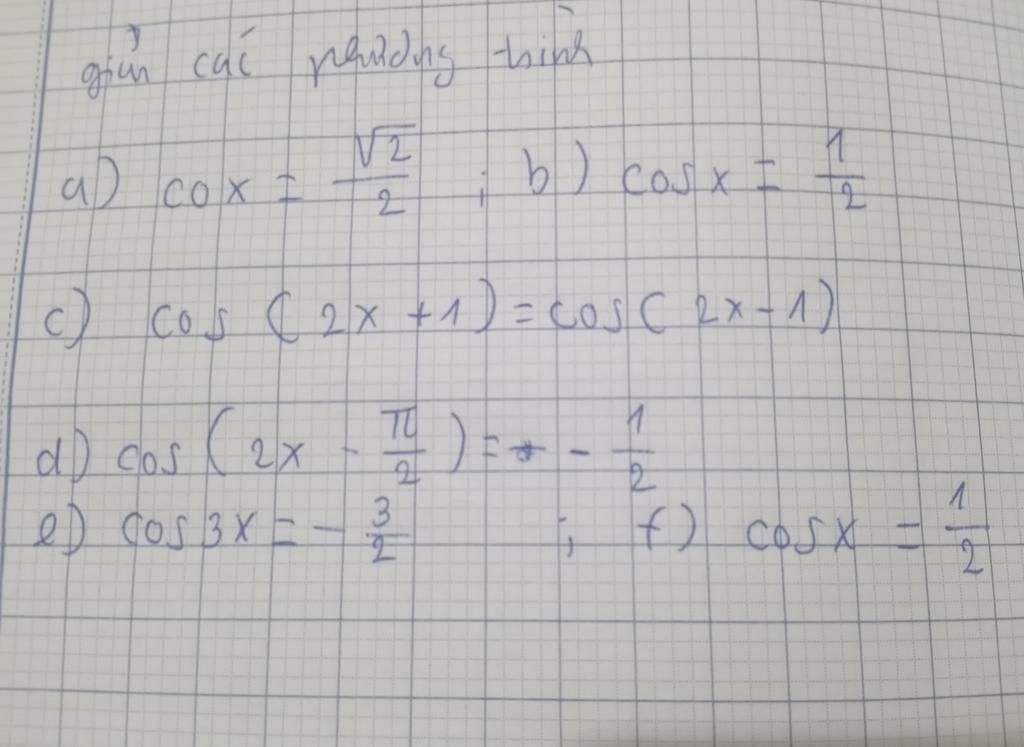 giải các phương trình
a) cox = √2/2 ; b) cosx = 1/2
c) cos (2x +1) = cos(2x-1)
d) cos (2x - π/2) = - 1/2
e) cos3x = - 3/2 ; f) cosx = 1/2